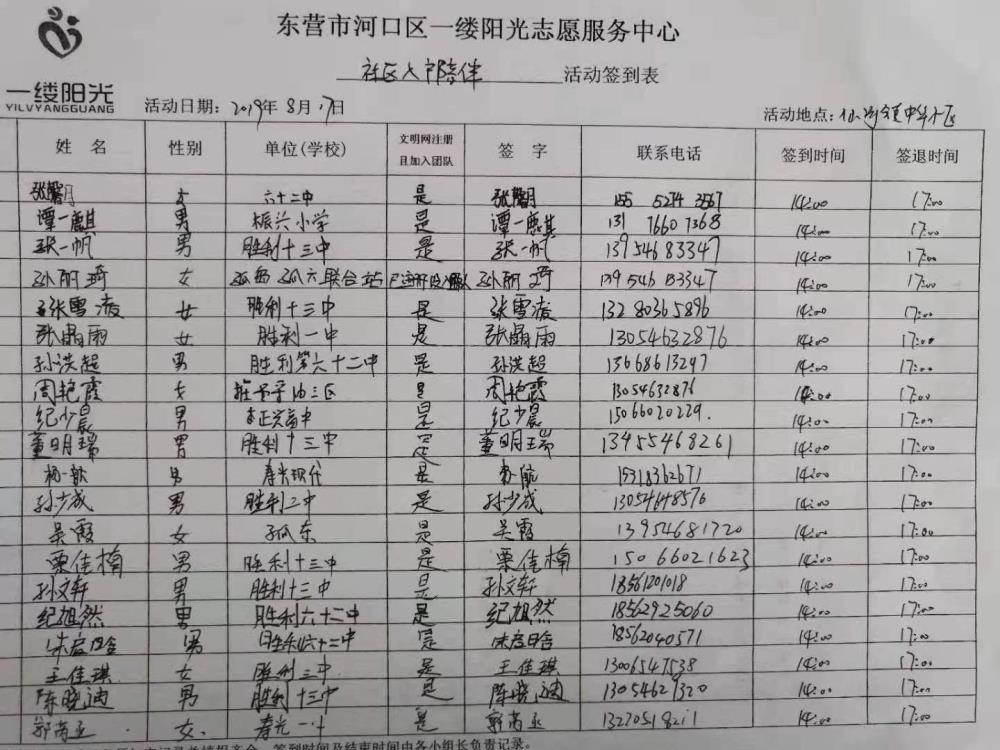 东营市河口区一缕阳光志愿服务中心
社区入户陪伴 活动签到表
一缕阳光
YILVYANGGUANG
活动日期：2019年8月17日
活动地点：
姓名 性别 单位(学校) 文明网注册且加入团队 签字 联系电话 签到时间 签退时间
张馨月 女 六十二中 是 张馨月 155 5274 3567 14:00 17:00
谭一麒 男 振兴小学 是 谭一麒 131 7660 7368 14:00 17:00
张一帆 男 胜利十三中 是 张一帆 13954683347 14:00 17:00
孙丽琦 女 孤岛孤六联合站 孙丽琦 14:00 17:00
张雪凌 女 胜利十三中 是 张雪凌 13280365896 14:00 17:00
张晶雨 女 胜利一中 是 张晶雨 13054632876 14:00 17:00
孙洪超 男 胜利第六十二中 是 孙洪超 13668613297 14:00 17:00
周艳霞 女 是 周艳霞 13054632876 14:00 17:00
纪少晨 男 是 纪少晨 15066020229. 14:00 17:00
董明瑞 男 胜利十三中 是 董明瑞 13455468261 14:00 17:00
男 寿光现代 是 15318362671 14:00 17:00
孙少成 男 胜利二中 是 孙少成 13054648576 14:00 17:00
吴霞 女 孤东 是 吴霞 13954681720 14:00 17:00
栗佳楠 男 胜利十三中 是 栗佳楠 15066021623 14:00 17:00
孙文轩 男 胜利十三中 是 孙文轩 18561201018 14:00 17:00
纪旭然 男 胜利六十二中 是 纪旭然 18562925060 14:00 17:00
男 胜利六十二中 是 18562040571 14:00 17:00
王佳琪 女 胜利三中 是 王佳琪 13006547538 14:00 17:00
陈晓迪 男 胜利十三中 是 陈晓迪 13054627320 14:00 17:00
郭芮丞 女 寿光一中 是 郭芮丞 14:00 17:00
签到时间及结束时间由各小组长负责记录。